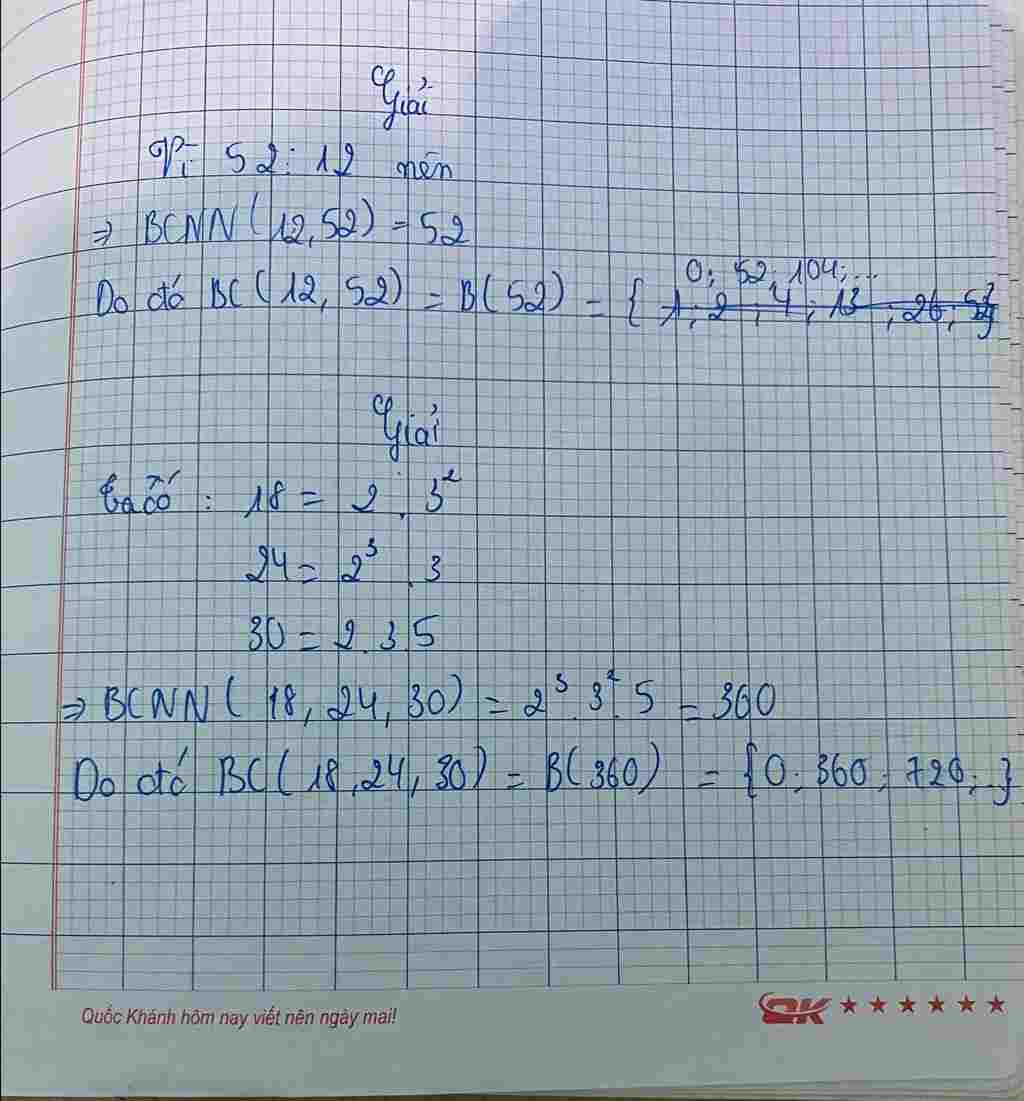 Giải
Vì 52 : 12 nên
⇒ BCNN(12, 52) = 52
0; 52; 104; ...
Do đó BC(12, 52) = B(52) = { 1; 2; 4; 13; 26; 52}
Giải
Ta có : 18 = 2 . 3²
24 = 2³ . 3
30 = 2.3.5
⇒ BCNN(18, 24, 30) = 2³.3².5 = 360
Do đó BC(18, 24, 30) = B(360) = {0; 360; 720; ..}
Quốc Khánh hôm nay viết nên ngày mai!
QK